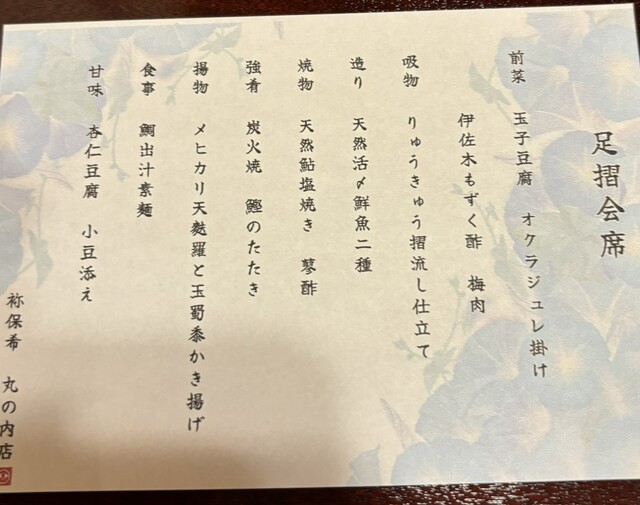 足摺会席
前菜　玉子豆腐　オクラジュレ掛け
伊佐木もずく酢　梅肉
吸物　りゅうきゅう摺流し仕立て
造り　天然活〆鮮魚二種
焼物　天然鮎塩焼き　蓼酢
強肴　炭火焼　鰹のたたき
揚物　メヒカリ天麩羅と玉蜀黍かき揚げ
食事　鯛出汁素麺
甘味　杏仁豆腐　小豆添え
祢保希　丸の内店